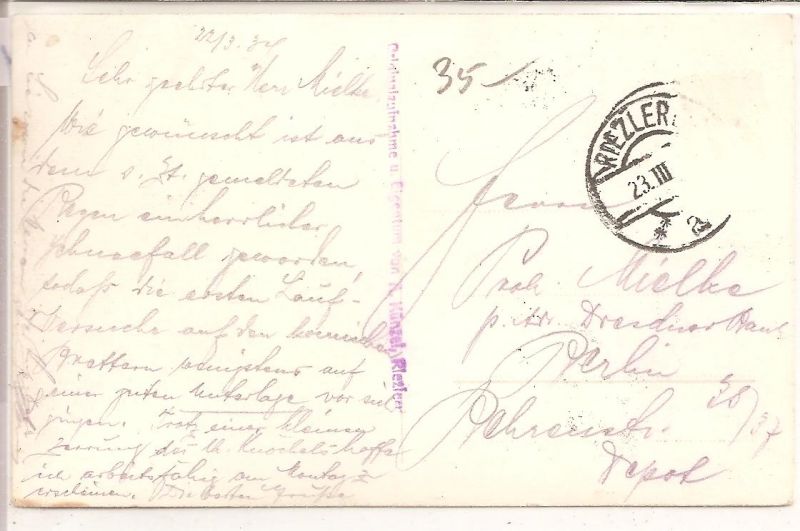 22/3. 34
Sehr geehrter Herr Mielke,
Wie gewünscht ist aus
dem z. Zt. gemeldeten
Regen ein herrlicher
Schneefall geworden,
sodaß die ersten Lauf-
versuche auf den
Brettern wenigstens auf
einer guten Unterlage vor sich
gingen. Trotz einer kleinen
Zerrung des Knöchels hoffe
ich arbeitsfähig am Montag z
erscheinen. Die besten Grüße
Originalaufnahme u. Eigentum von A. Künzel, Riezlern
35
RIEZLER
23.III
a
Herrn
Mielke
p. Adr. Dresdner Bank
Berlin
Behrenstr. 35/37
Depot